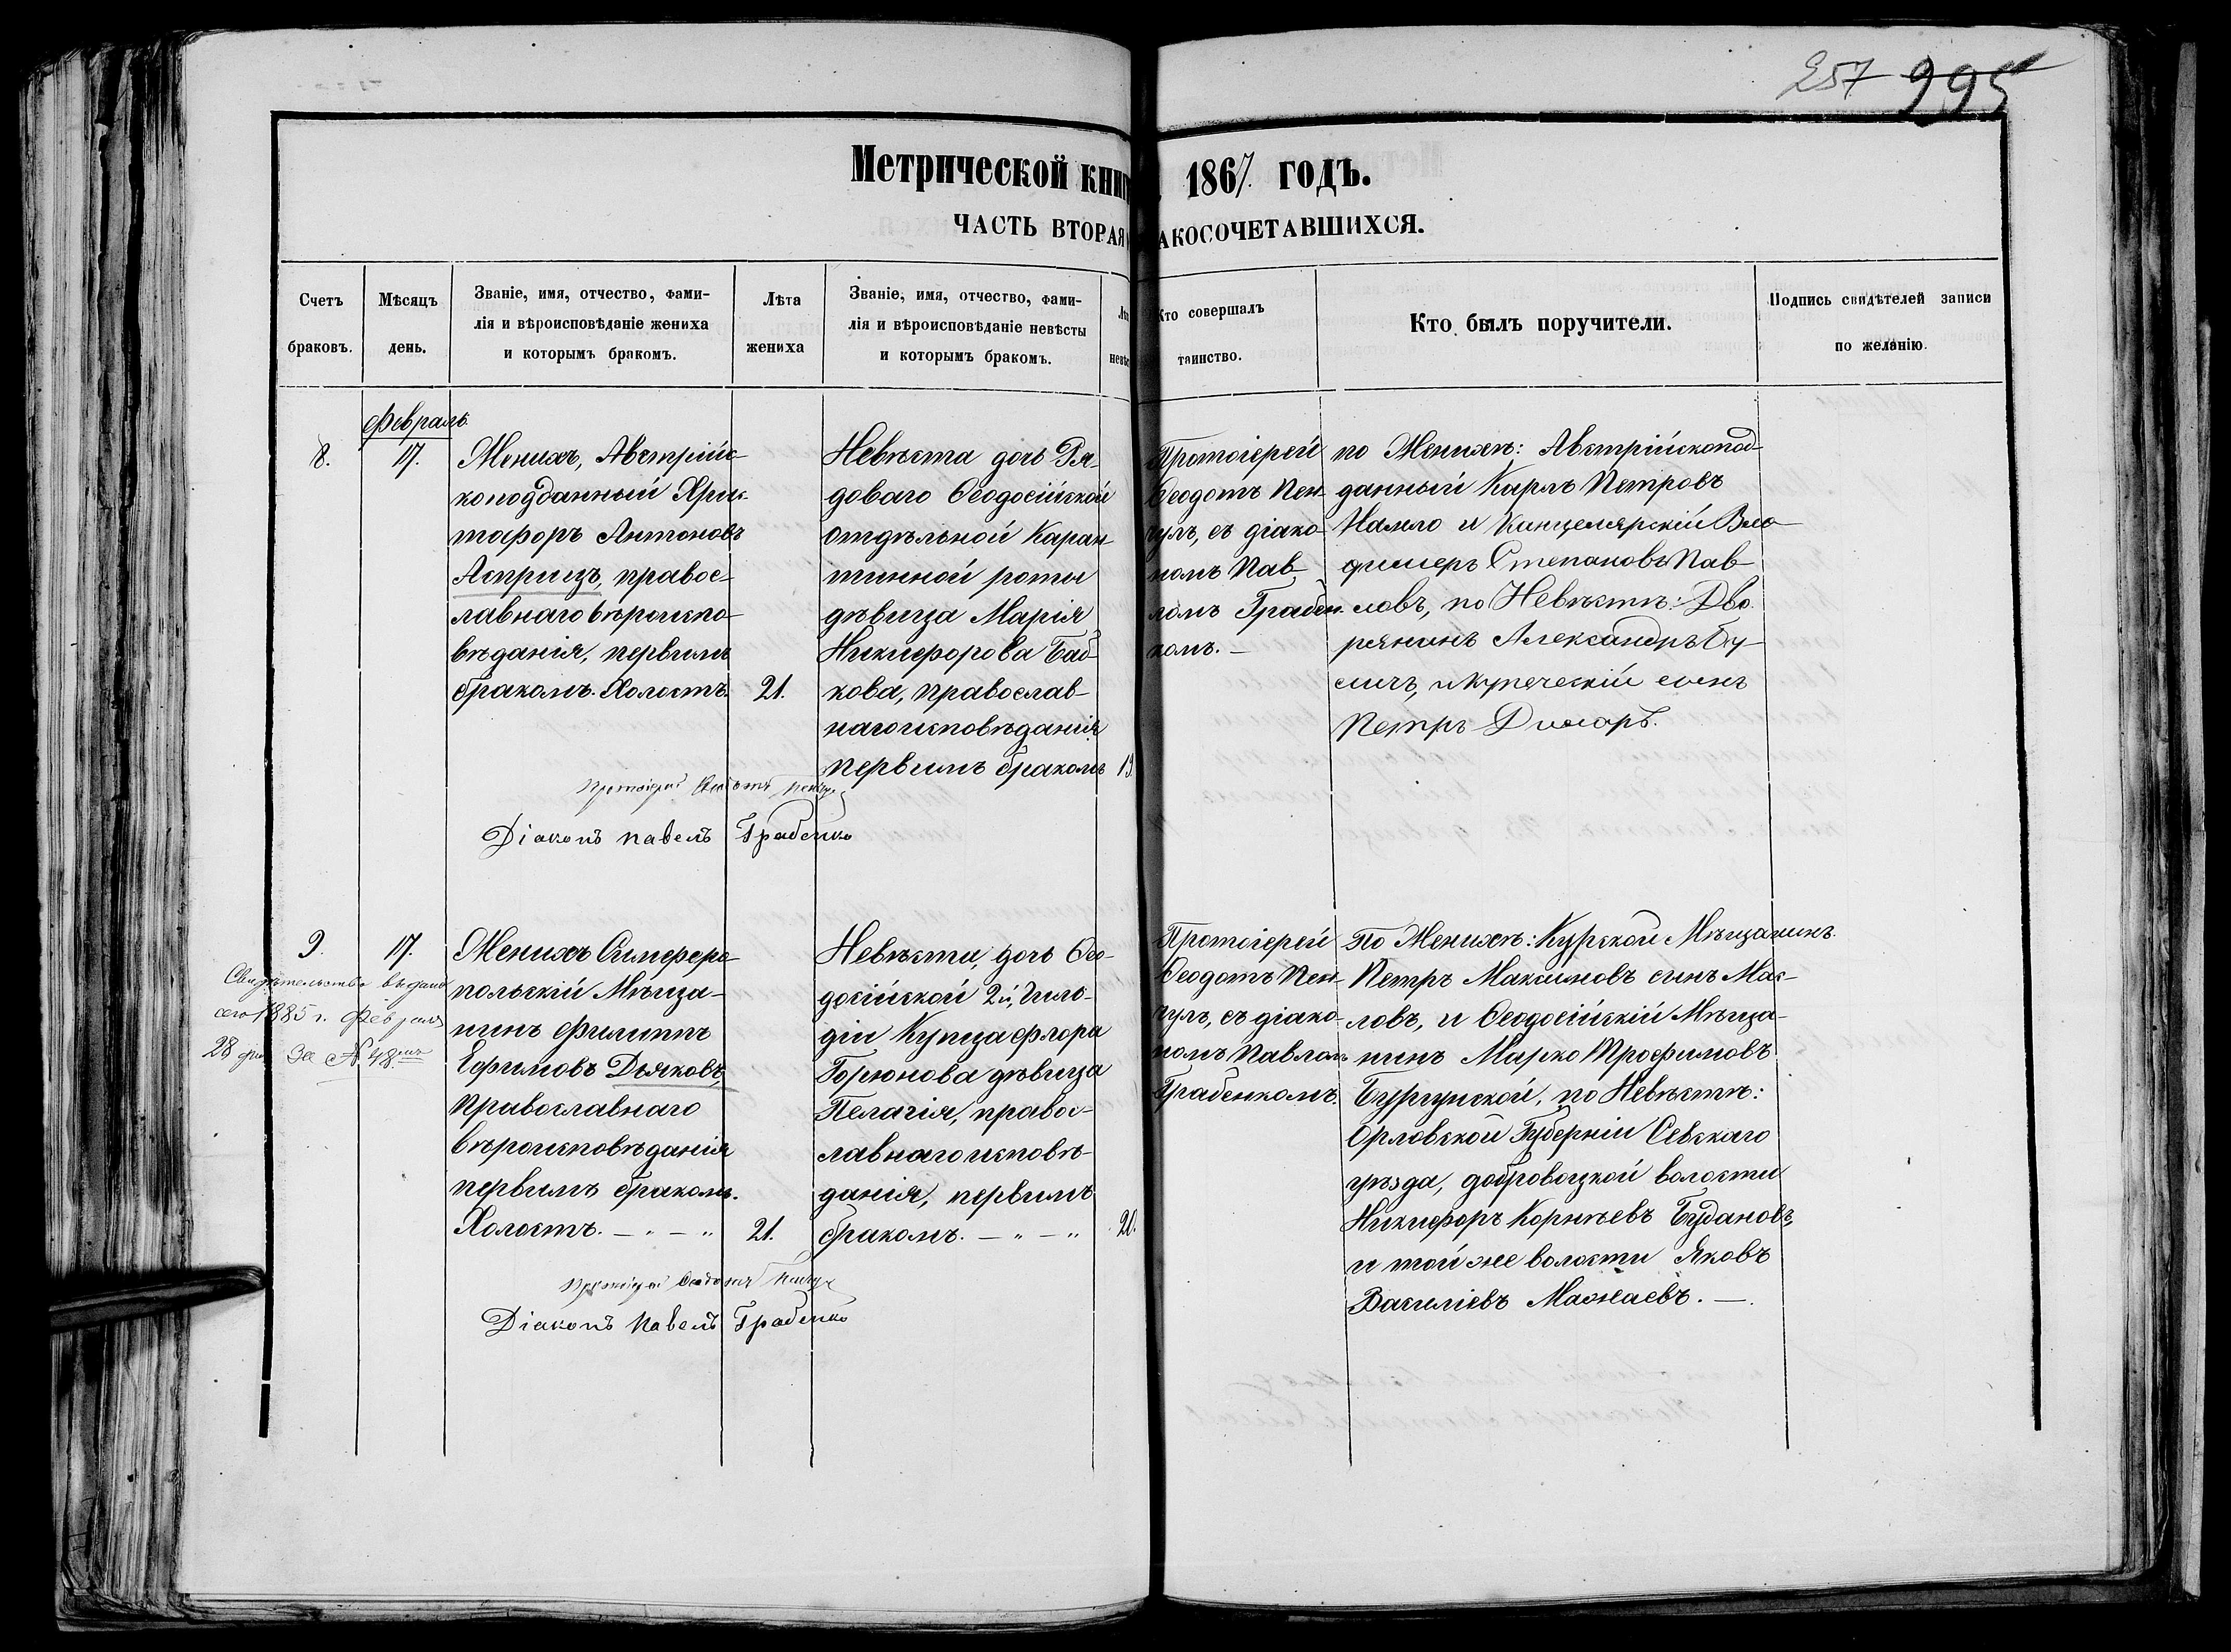 257 295
Метрической книг 1867 годъ.
ЧАСТЬ ВТОРАЯ АКОСОЧЕТАВШИХСЯ.
Счетъ браковъ.
Мѣсяцъ день.
Званіе, имя, отчество, фами-
лія и вѣроисповѣданіе жениха
и которымъ бракомъ.
Лѣта жениха
Званіе, имя, отчество, фами-
лія и вѣроисповѣданіе невѣсты
и которымъ бракомъ.
Лѣ
невѣс
Кто совершалъ
таинство.
Кто былъ поручители.
Подпись свидѣтелей записи
по желанію.
Февраль
8.
17.
Женихъ, Австрійс-
коподданный Хрис-
тофоръ Антоновъ
Асприцъ, правос-
лавнаго вѣроиспо-
вѣданія, первымъ
бракомъ. Холостъ.
21.
Невѣста дочь Ря-
доваго Ѳеодосійской
отдѣльной Каран-
тинной роты
дѣвица Марія
Никифорова Баб-
кова, православ-
наго исповѣданія
первымъ бракомъ
19.
Протоіерей
Ѳеодотъ Пен-
чулъ, съ діако-
номъ Пав-
ломъ Грабен-
комъ. —
по Женихѣ: Австрійскопод-
данный Карлъ Петровъ
и Канцелярскій Вла-
димеръ Степановъ Пав-
ловъ, по Невѣстѣ: Дво-
рянинъ Александръ Бу-
сичъ, и купеческій сынъ
Петръ
Протоіерей Ѳеодотъ Пенчулъ
Діаконъ Павелъ Грабенко
9.
17.
Свидѣтельство выдано
сего 1885 г. Февраля
28 дня за № 48мъ
Женихъ Симферо-
польскій Мѣща-
нинъ Филиппъ
Ефимовъ Дьяковъ,
православнаго
вѣроисповѣданія
первымъ бракомъ.
Холостъ. — " — "
21.
Невѣста, дочь Ѳео-
досійской 2й Гиль-
діи Купца Флора
Горюнова дѣвица
Пелагія, правос-
лавнаго исповѣ-
данія, первымъ
бракомъ. — " — "
20.
Протоіерей
Ѳеодотъ Пен-
чулъ, съ діако-
номъ Павломъ
Грабенкомъ.
По Женихѣ: Курской Мѣщанинъ
Петръ Максимовъ сынъ Мас-
ловъ, и Ѳеодосійскій Мѣща-
нинъ Марко Трофимовъ
Бургунской, по Невѣстѣ:
Орловской Губерніи Севскаго
уѣзда, доброводцкой волости
Никифоръ Корнѣевъ Будановъ,
и той же волости Яковъ
Василіевъ Мажаевъ. —.
Протоіерей Ѳеодотъ Пенчулъ
Діаконъ Павелъ Грабенко